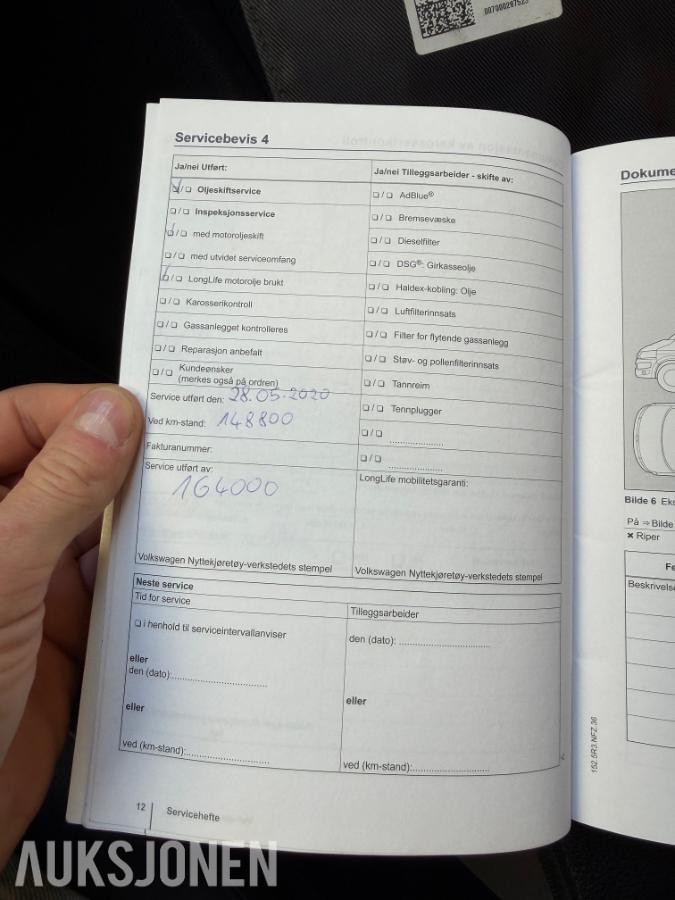 Servicebevis 4
Ja/nei Utført:
❏/❏ Oljeskiftservice
❏/❏ Inspeksjonsservice
❏/❏ med motoroljeskift
❏/❏ med utvidet serviceomfang
❏/❏ LongLife motorolje brukt
❏/❏ Karosserikontroll
❏/❏ Gassanlegget kontrolleres
❏/❏ Reparasjon anbefalt
❏/❏ Kundeønsker
(merkes også på ordren)
Service utført den: 28.05.2020
Ved km-stand: 148800
Fakturanummer:
Service utført av:
164000
Volkswagen Nyttekjøretøy-verkstedets stempel
Ja/nei Tilleggsarbeider - skifte av:
❏/❏ AdBlue®
❏/❏ Bremsevæske
❏/❏ Dieselfilter
❏/❏ DSG®: Girkasseolje
❏/❏ Haldex-kobling: Olje
❏/❏ Luftfilterinnsats
❏/❏ Filter for flytende gassanlegg
❏/❏ Støv- og pollenfilterinnsats
❏/❏ Tannreim
❏/❏ Tennplugger
❏/❏ ....................
❏/❏ ....................
LongLife mobilitetsgaranti:
Volkswagen Nyttekjøretøy-verkstedets stempel
Neste service
Tid for service
❏ i henhold til serviceintervallanviser
eller
den (dato):..............................
eller
ved (km-stand):..........................
Tilleggsarbeider
den (dato): ..............................
eller
ved (km-stand):..........................
12
Servicehefte
152.5R3.NFZ.36
Dokume
Bilde 6 Eks
På ⇒ Bilde
✖ Riper
Fe
Beskrivelse
AUKSJONEN